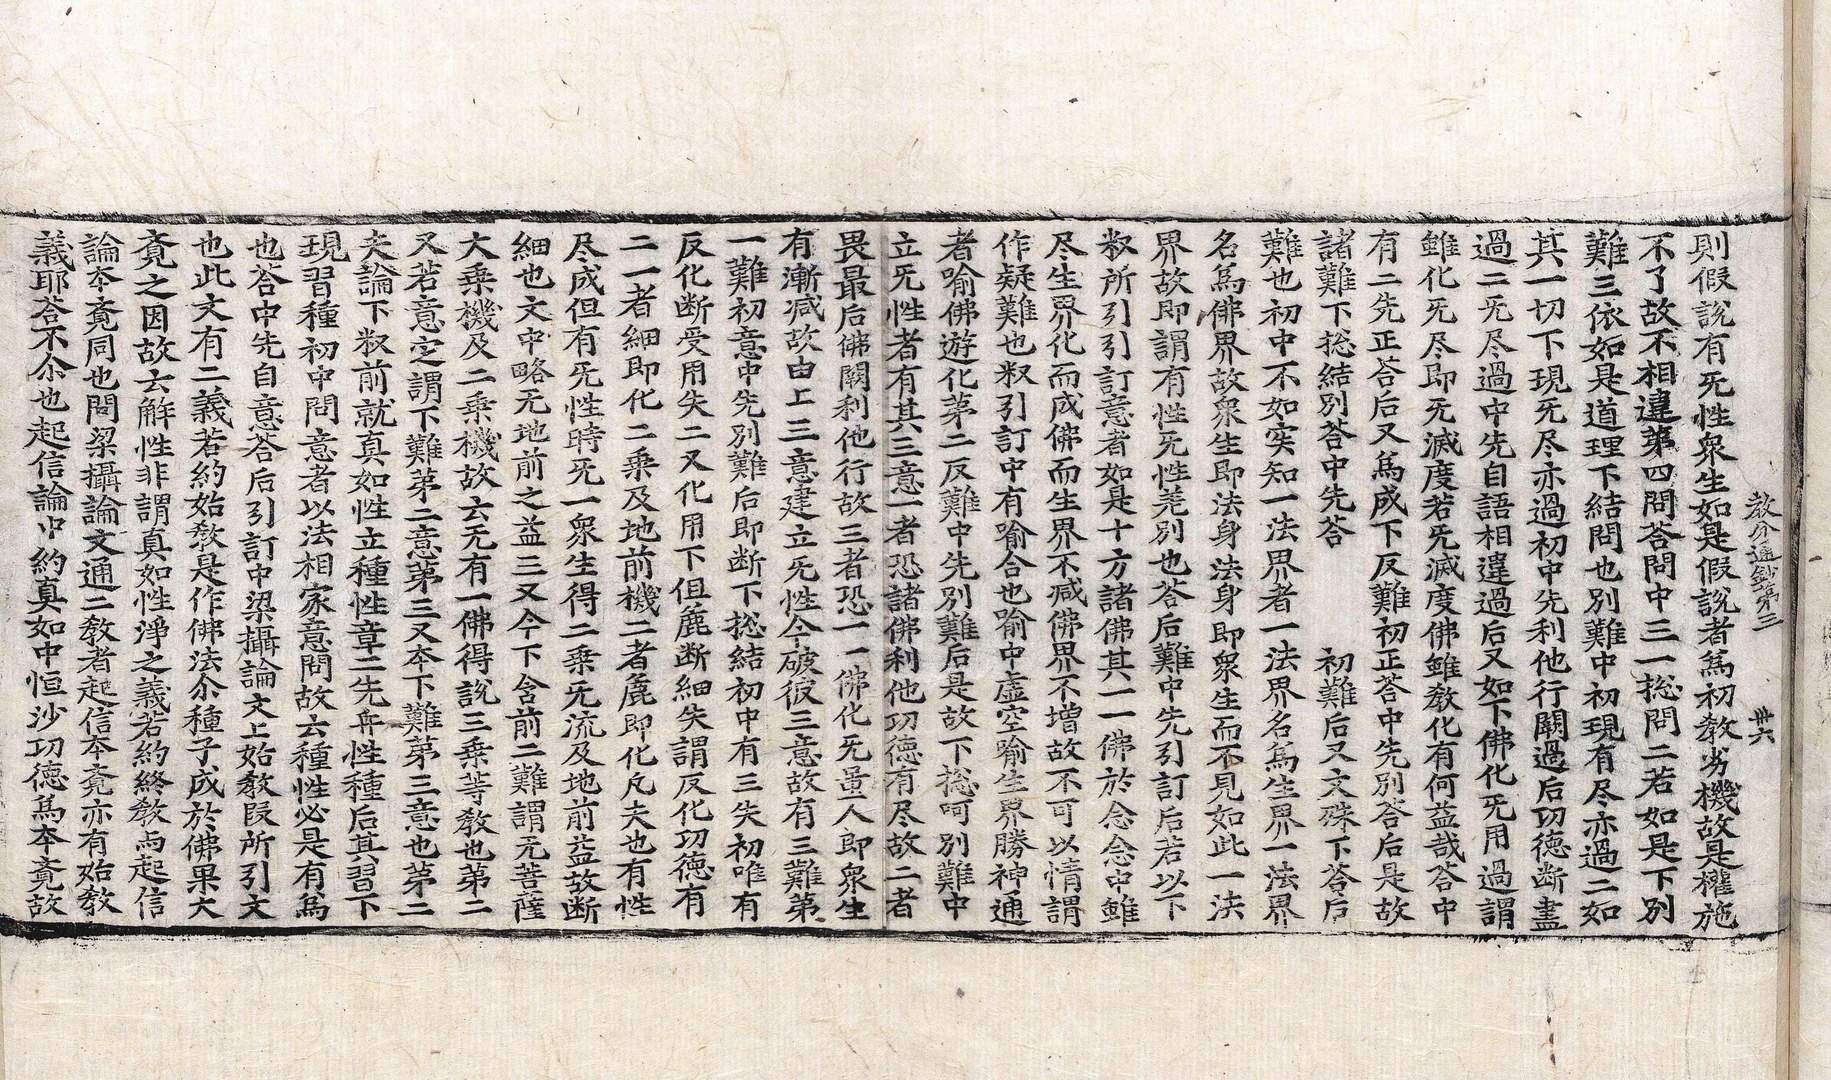 教分通鈔第三　卅六
則假說有旡性衆生如是假說者爲初敎劣機故是權施
不了故不相違第四問答問中三一㧾問二若如是下別
難三依如是道理下結問也別難中初現有尽亦過二如
其一切下現旡尽亦過初中先利他行闕過后功德断盡
過二旡尽過中先自語相違過后又如下佛化旡用過謂
雖化旡尽即旡滅度若旡滅度佛雖敎化有何益哉荅中
有二先正荅后又爲成下反難初正荅中先別荅后是故
諸難下㧾結別荅中先荅　初難后又文殊下荅后
難也初中不如实知一法界者一法界名爲生界一法界
名爲佛界故衆生即法身法身即衆生而不見如此一法
界故即謂有性旡性差別也荅后難中先引訂后若以下
叙所引引訂意者如是十方諸佛其一一佛於念念中雖
尽生界化而成佛而生界不减佛界不增故不可以情謂
作疑難也叙引訂中有喻合也喻中虛空喻生界勝神通
者喻佛遊化第二反難中先別難后是故下㧾呵別難中
立旡性者有其三意一者恐諸佛利他功德有尽故二者
畏最后佛闕利他行故三者恐一一佛化旡量人即衆生
有漸减故由上三意建立旡性今破彼三意故有三難第
一難初意中先別難后即断下㧾結初中有三失初唯有
反化断受用失二又化用下但麁断細失謂反化功德有
二一者細即化二乗及地前機二者麁即化凡夫也有性
尽成但有旡性時旡一衆生得二乗旡流及地前益故断
細也文中略旡地前之益三又今下含前二難謂旡菩薩
大乗機及二乗機故云旡有一佛得說三乗等敎也第二
又若意㝎謂下難第二意第三又本下難第三意也第二
夫論下叙前就真如性立種性章二先弁性種后其習下
現習種初中問意者以法相家意問故云種性必是有爲
也荅中先自意荅后引訂中梁攝論文上始敎段所引文
也此文有二義若約始敎是作佛法尒種子成於佛果大
竟之因故云解性非謂真如性淨之義若約終敎与起信
論本竟同也問梁攝論文通二敎者起信本竟亦有始敎
義耶荅不尒也起信論中約真如中恒沙功德爲本竟故